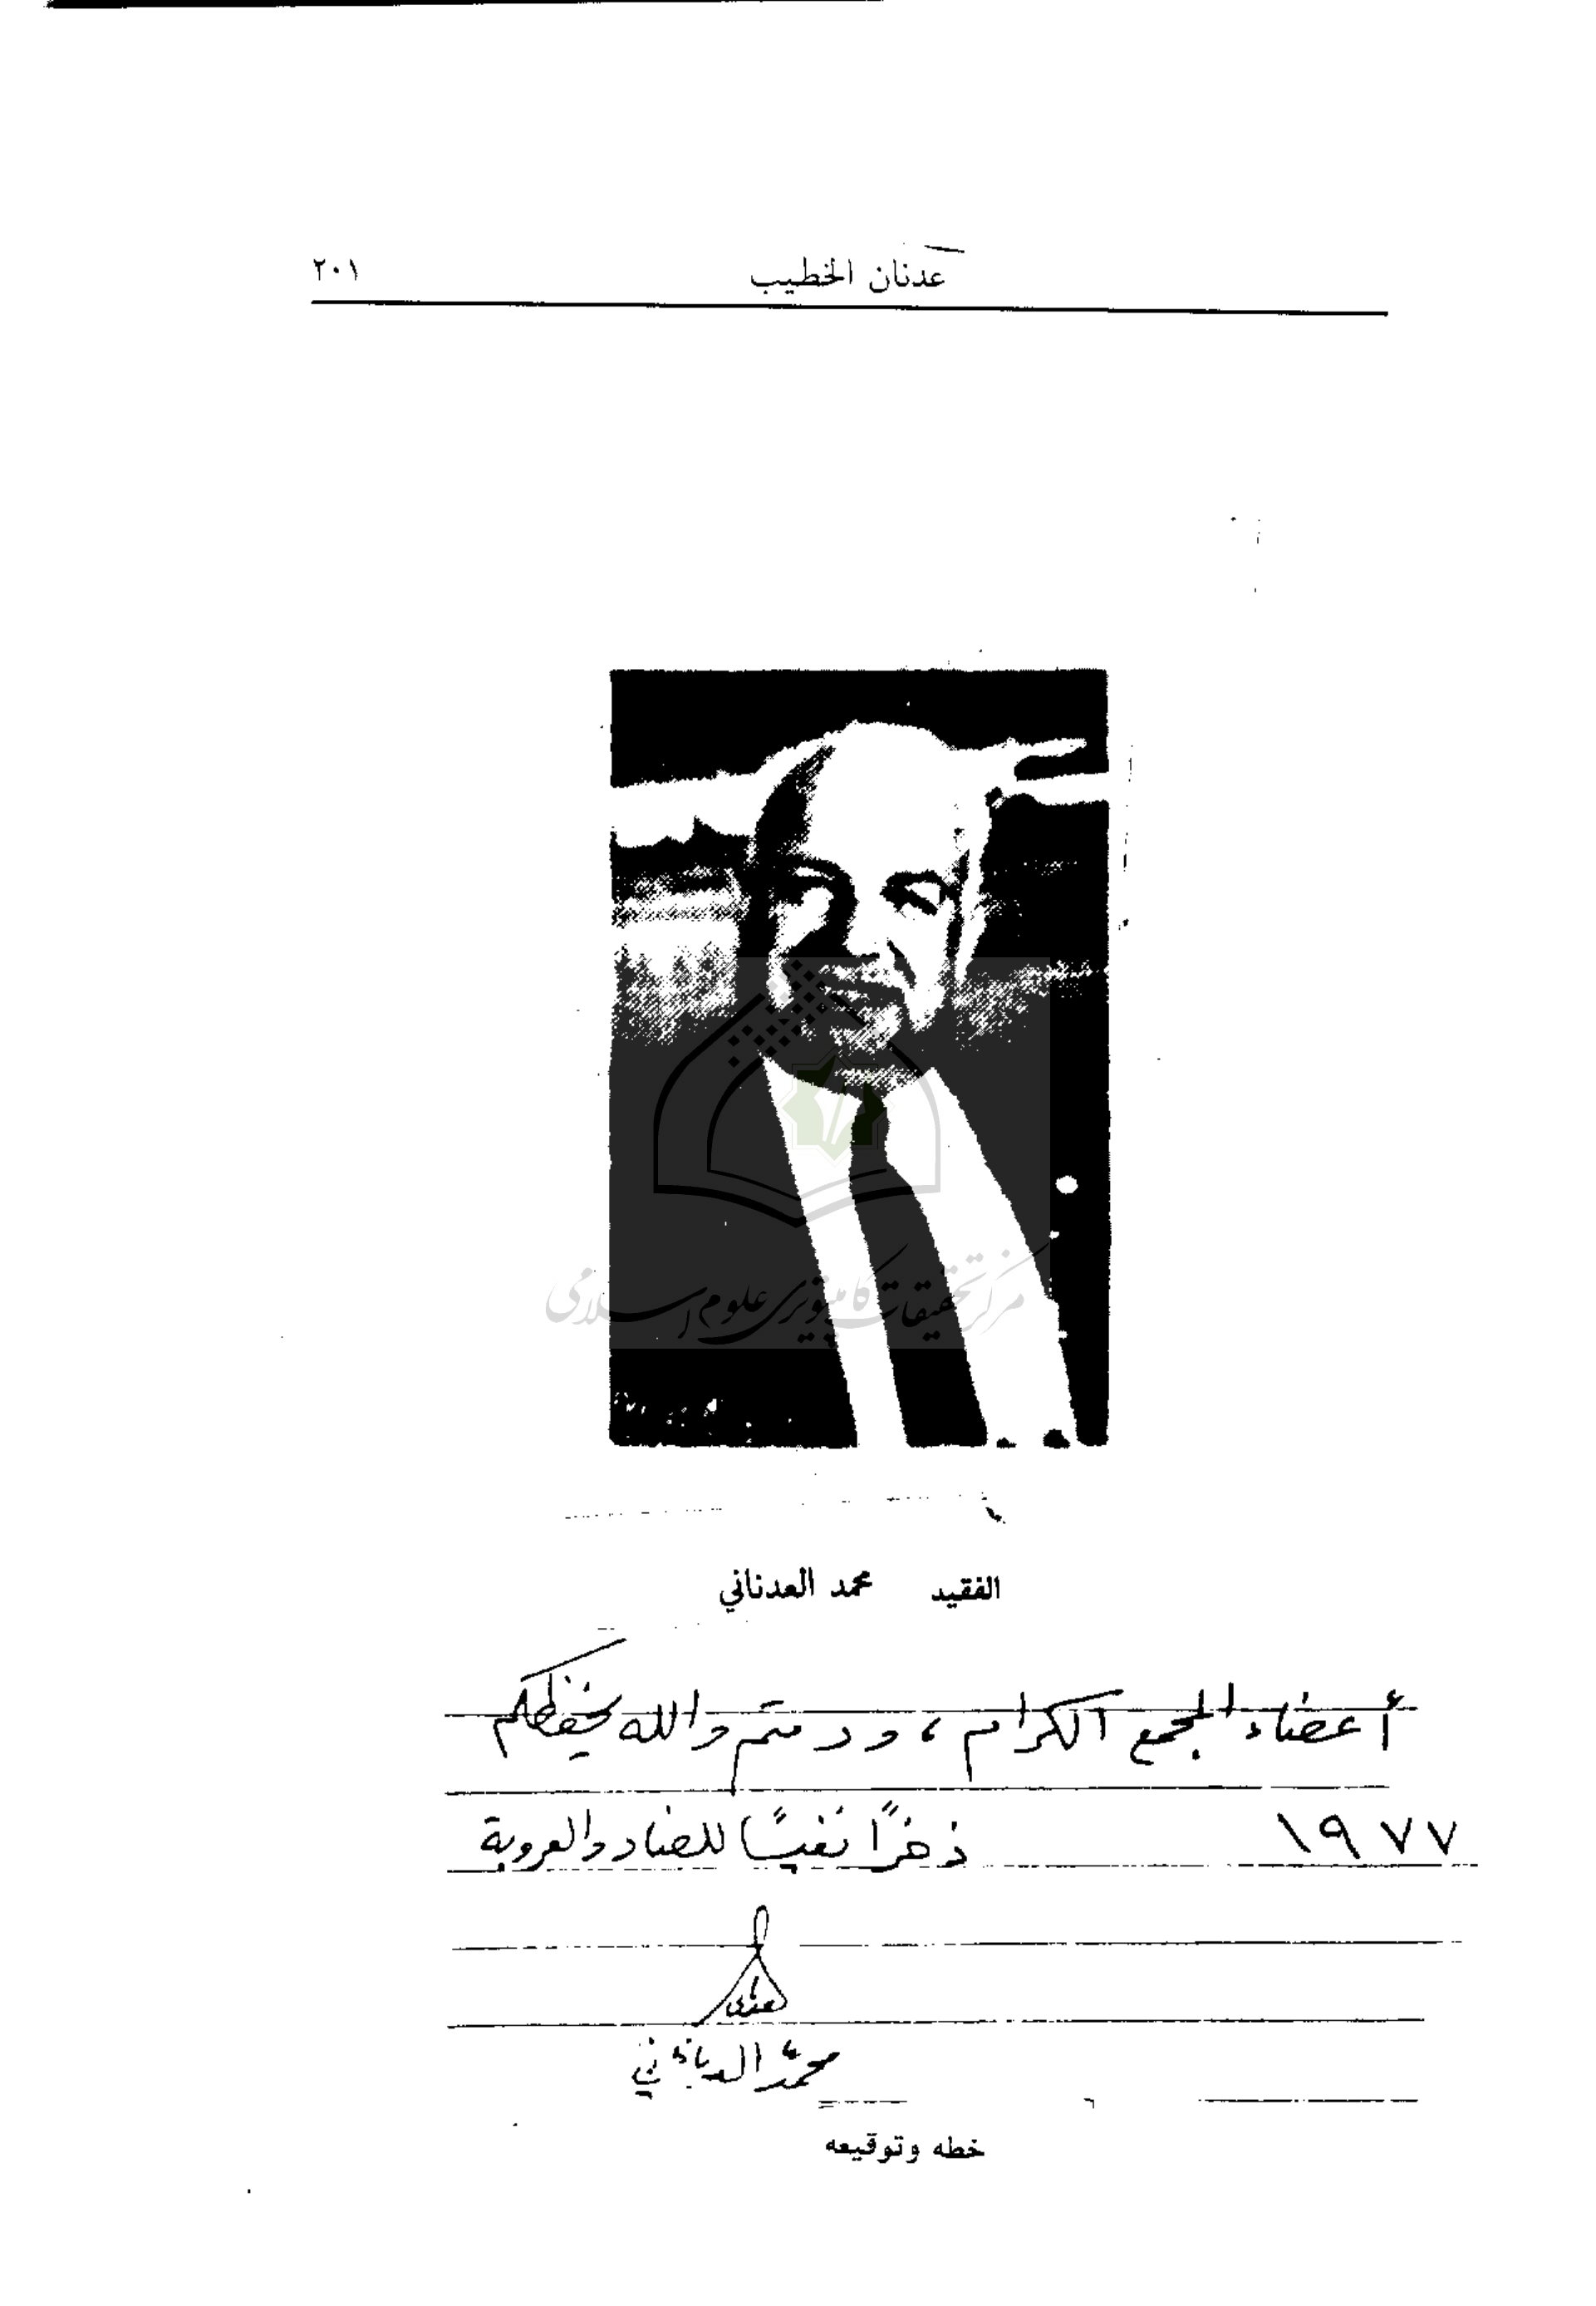 عدنان الخطيب ٢٠١
مركز تحقيقات كامپيوتری علوم اسلامی
الفقيد محمد العدناني
أعضاء المجمع الكرام ، ودمتم والله يحفظكم
١٩٧٧ ذخرًا نفيسًا للضاد والعروبة
محمد العدناني
خطه وتوقيعه